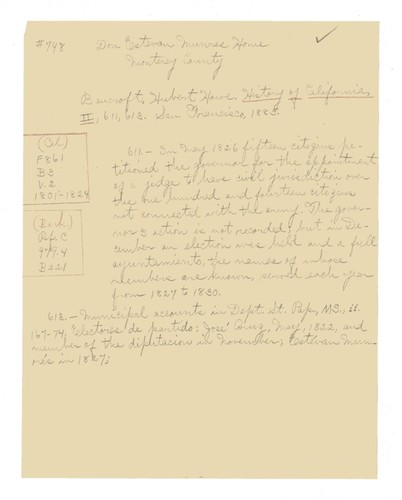 #748
Don Estevan Munras Home
Monterey County
Bancroft, Hubert Howe, History of California,
II, 611, 613. San Francisco, 1885.
(Cl)
F861
B3
V.2
1801-1824
(Bank.)
Ref. C
979.4
B221
611 - In May 1826 fifteen citizens pe-
titioned the governor for the appointment
of a judge to have civil jurisdiction over
the one hundred and fourteen citizens
not connected with the army. The gover-
nor's action is not recorded; but in De-
cember an election was held and a full
ayuntamiento, the names of whose
members are known, served each year
from 1827 to 1830.
613.- Municipal accounts in Dept. St. Pap., MS., ii.
167-74, Electores de partido: José Cruz, May, 1822, and
member of the diputacion in November; Estevan Mun-
rás in 1827;